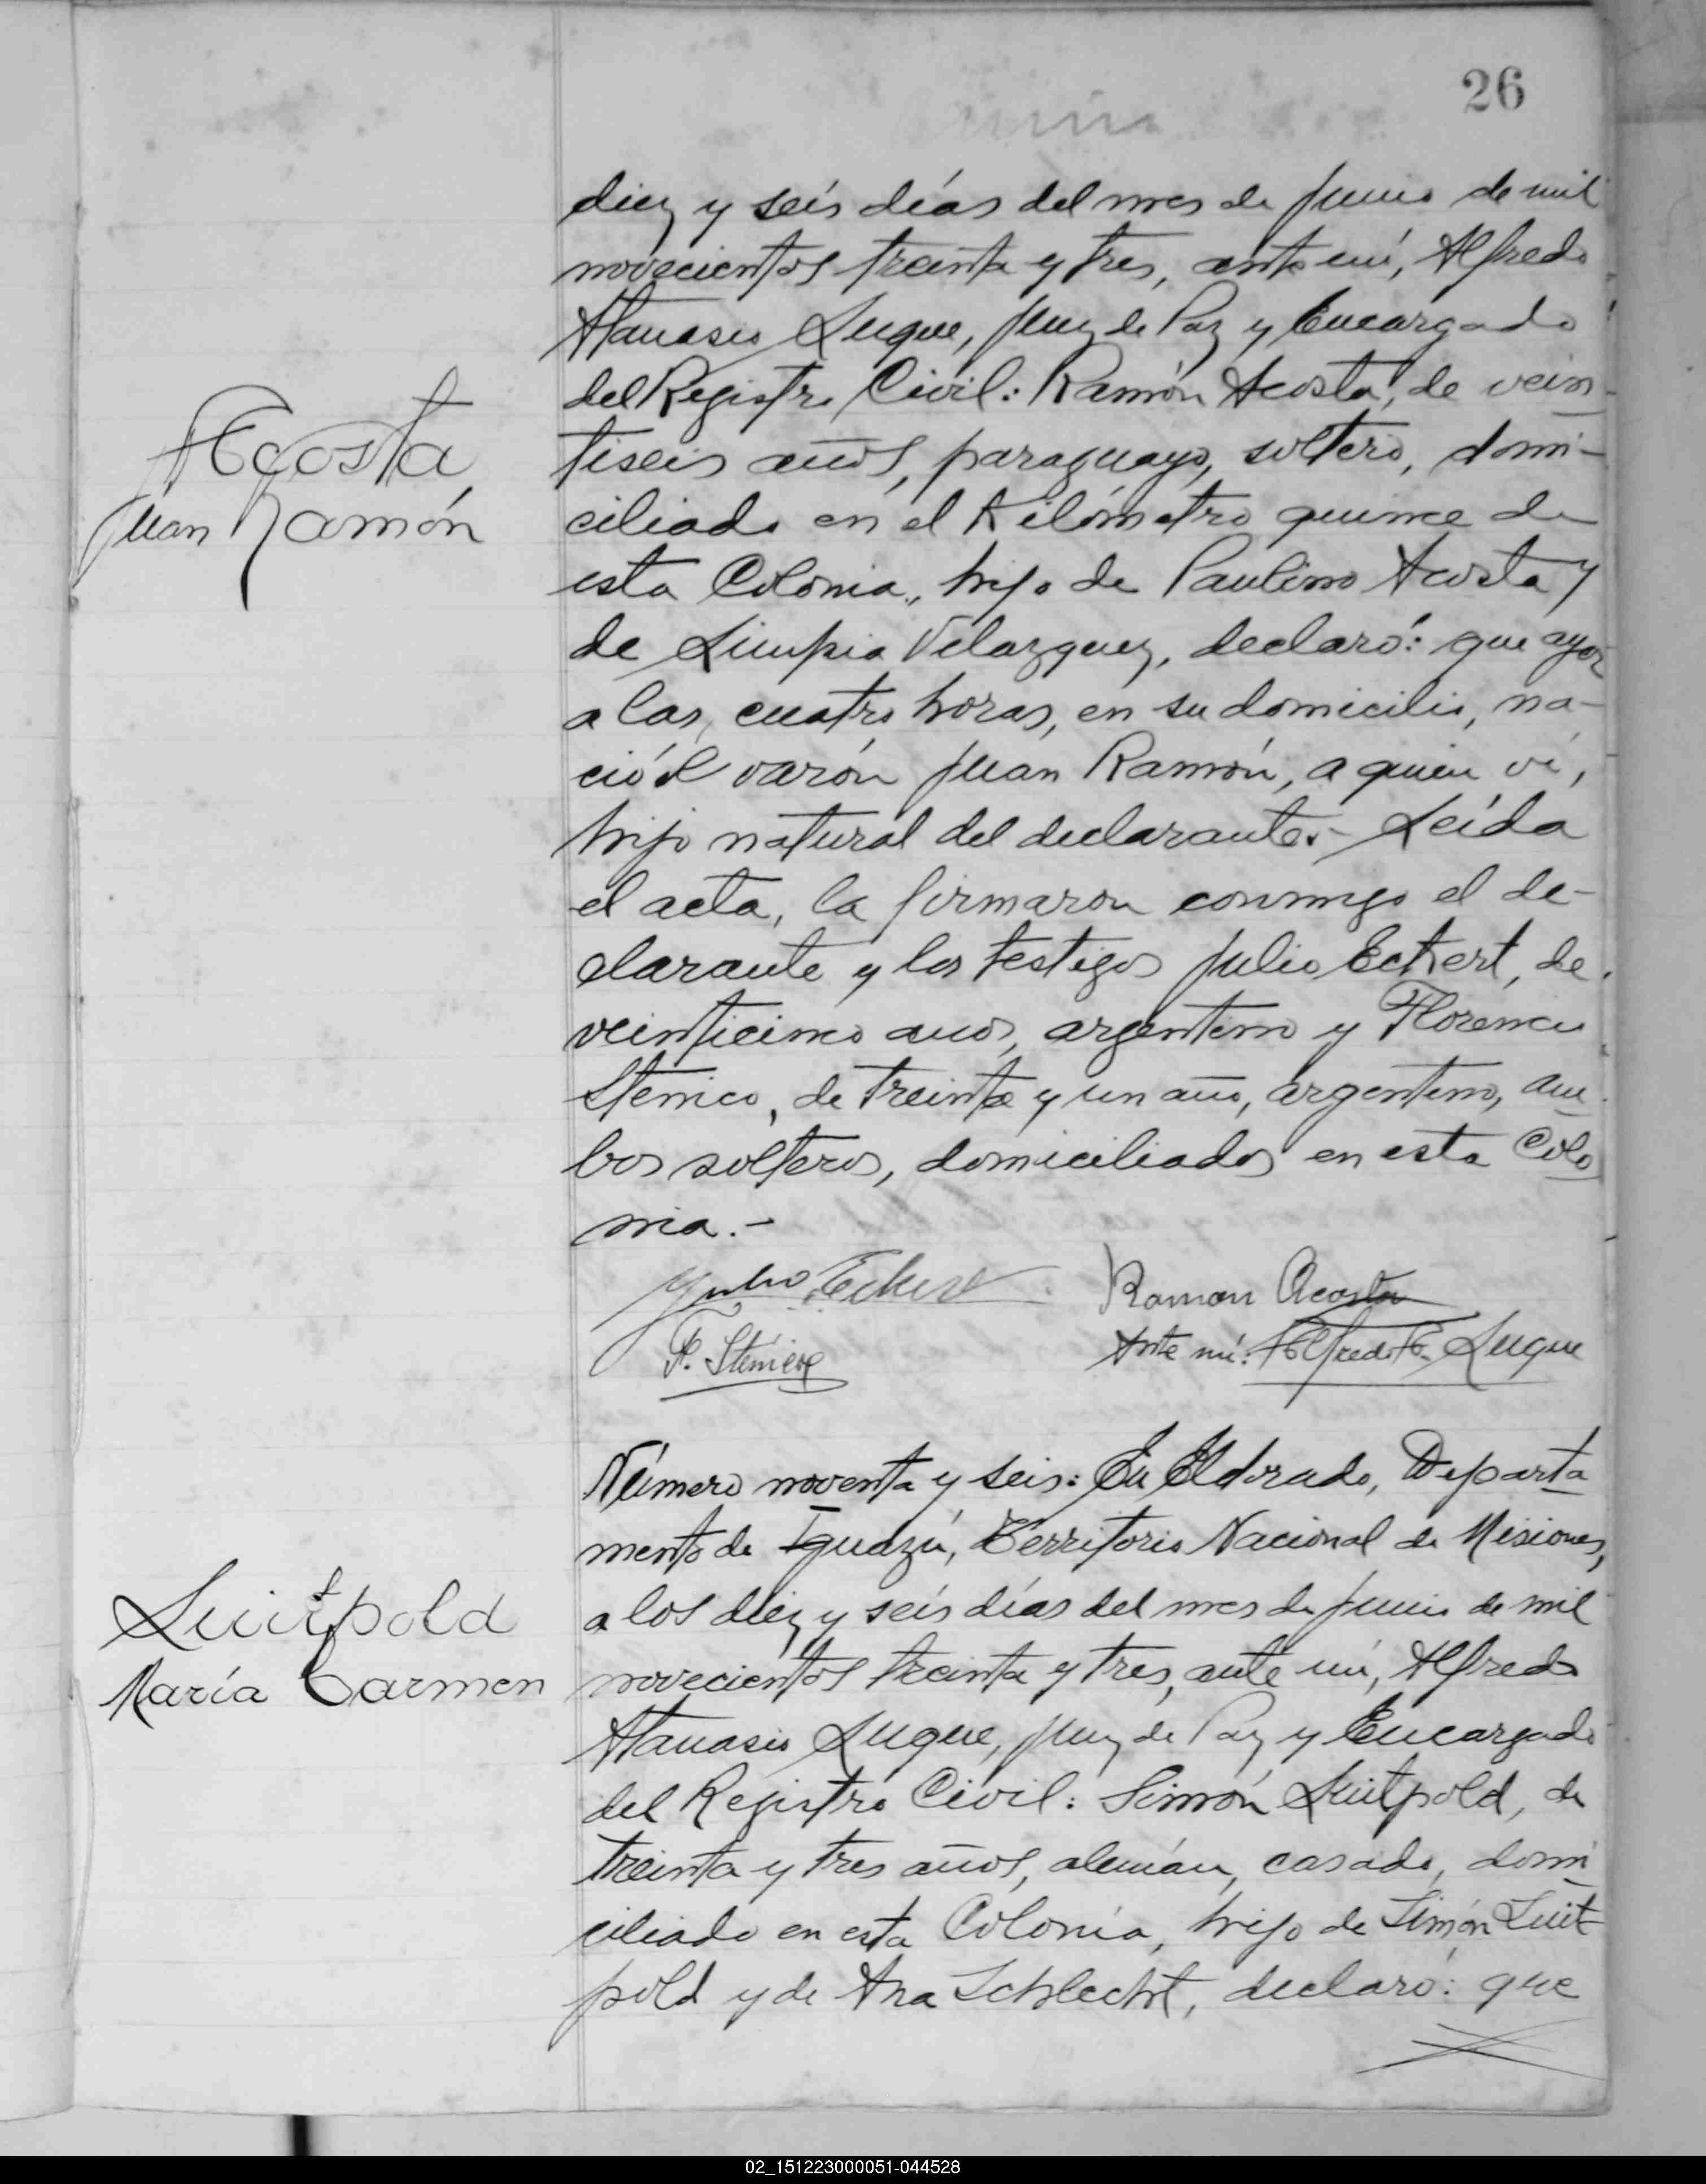 26
diez y seis días del mes de Junio de mil
novecientos treinta y tres, ante mí, Alfredo
Atanasio Luque, Juez de Paz y Encargado
del Registro Civil: Ramón Acosta, de vein-
tiseis años, paraguayo, soltero, domi-
ciliado en el Kilómetro quince de
esta Colonia, hijo de Paulino Acosta y
de Limpia Velazquez, declaró: que ayer
a las cuatro horas, en su domicilio, na-
ció el varón Juan Ramón, a quien ví,
hijo natural del declarante.- Leída
el acta, la firmaron conmigo el de-
clarante y los testigos Julio Eckert, de
veinticinco años, argentino y Florencio
Stenico, de treinta y un año, argentino, am
bos solteros, domiciliados en esta Colo
nia.-
Acosta
Juan Ramón
Julio Eckert
Ramon Acosta
F. Stenico
Ante mí: Alfredo A. Luque
Número noventa y seis: En Eldorado, Departa
mento de Iguazú, Territorio Nacional de Misiones,
a los diez y seis días del mes de Junio de mil
novecientos treinta y tres, ante mí, Alfredo
Atanasio Luque, Juez de Paz y Encargado
del Registro Civil: Simón Luitpold, de
treinta y tres años, alemán, casado, domi
ciliado en esta Colonia, hijo de Simón Luit-
pold y de Ana Schlecht, declaró: que
Luitpold
María Carmen
02_151223000051-044528